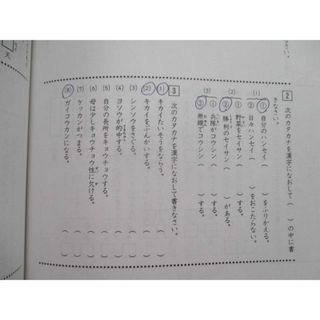 2 次のカタカナを漢字になおして( )の中に書きなさい。
(1) ① 自分のハンセイ ( )をふりかえる。
② 日々ハンセイ ( )をおこたらない。
(2) ① 野菜をセイサン ( )する。
② 勝利のセイサン ( )がある。
(3) ① 兵隊がコウシン ( )する。
② 無線でコウシン ( )する。
3 次のカタカナを漢字になおして書きなさい。
(1) キカイたいそうをならう。 ( )
(2) キカイをぶんかいする。 ( )
(3) シンソウをさぐる。 ( )
(4) ヨソウが的中する。 ( )
(5) 自分の長所をキョウチョウする。 ( )
(6) 母は少しキョウチョウ性に欠ける。 ( )
(7) ケッカンがつまる。 ( )
(8) ガイコウカンになる。 ( )